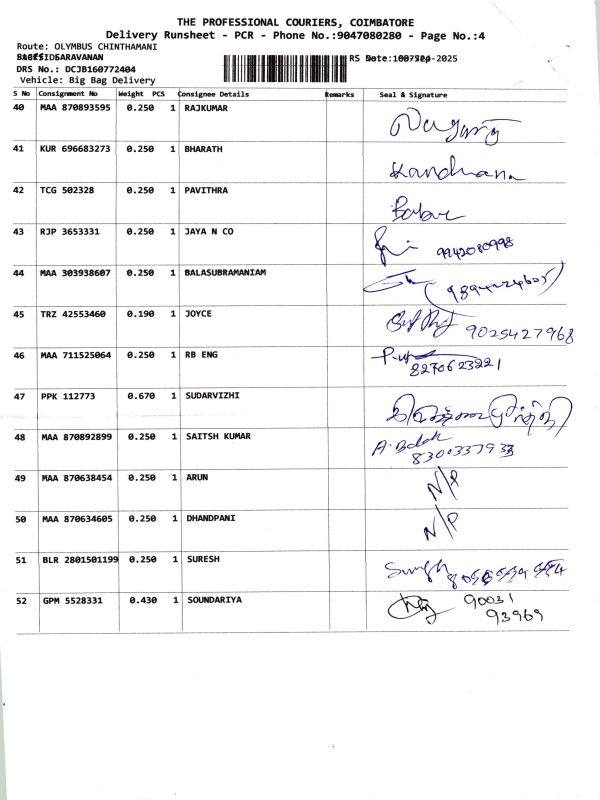 THE PROFESSIONAL COURIERS, COIMBATORE
Delivery Runsheet - PCR - Phone No.:9047080280 - Page No.:4
Route: OLYMBUS CHINTHAMANI
SARAVANAN RS -2025
DRS No.: DCJB160772404
Vehicle: Big Bag Delivery
S No Consignment No Weight PCS Consignee Details Remarks Seal & Signature
40 MAA 870893595 0.250 1 RAJKUMAR
41 KUR 696683273 0.250 1 BHARATH
42 TCG 502328 0.250 1 PAVITHRA
43 RJP 3653331 0.250 1 JAYA N CO 9942080998
44 MAA 303938607 0.250 1 BALASUBRAMANIAM
45 TRZ 42553460 0.190 1 JOYCE 9025427968
46 MAA 711525064 0.250 1 RB ENG
8270623221
47 PPK 112773 0.670 1 SUDARVIZHI
48 MAA 870892899 0.250 1 SAITSH KUMAR
8300337933
49 MAA 870638454 0.250 1 ARUN N/P
50 MAA 870634605 0.250 1 DHANDPANI N/P
51 BLR 2801501199 0.250 1 SURESH
52 GPM 5528331 0.430 1 SOUNDARIYA 90031
93969